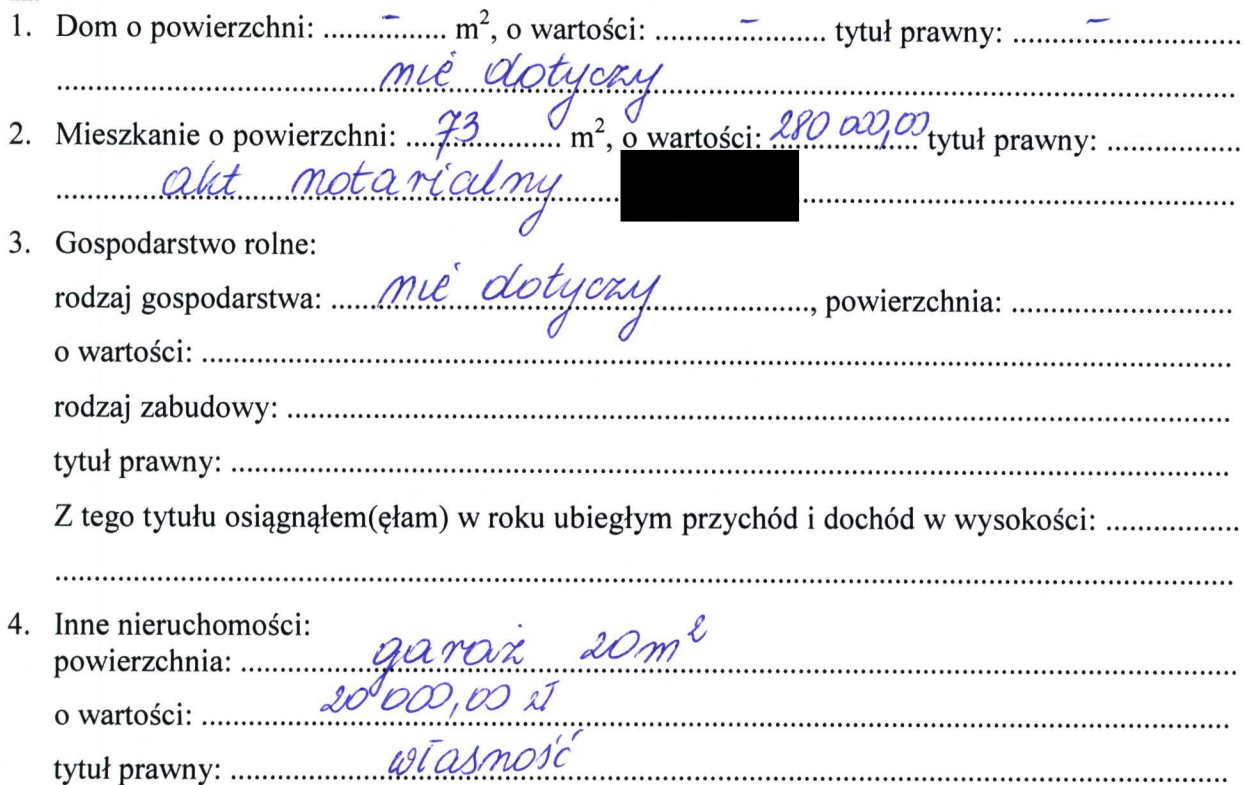 1. Dom o powierzchni: .........-....... m², o wartości: ..............-............ tytuł prawny: ............-....................
.................................................nie dotyczy.................................................
2. Mieszkanie o powierzchni: ....73............ m², o wartości: 280 000,00 tytuł prawny: ..................
................akt notarialny.................................................
3. Gospodarstwo rolne:
rodzaj gospodarstwa: ......nie dotyczy......................., powierzchnia: ..............................
o wartości: .................................................
rodzaj zabudowy: .................................................
tytuł prawny: .................................................
Z tego tytułu osiągnąłem(ęłam) w roku ubiegłym przychód i dochód w wysokości: ..................
.................................................
4. Inne nieruchomości:
powierzchnia: ..................garaż 20m².................................................
o wartości: ..................20 000,00 zł.................................................
tytuł prawny: ......................własność.................................................